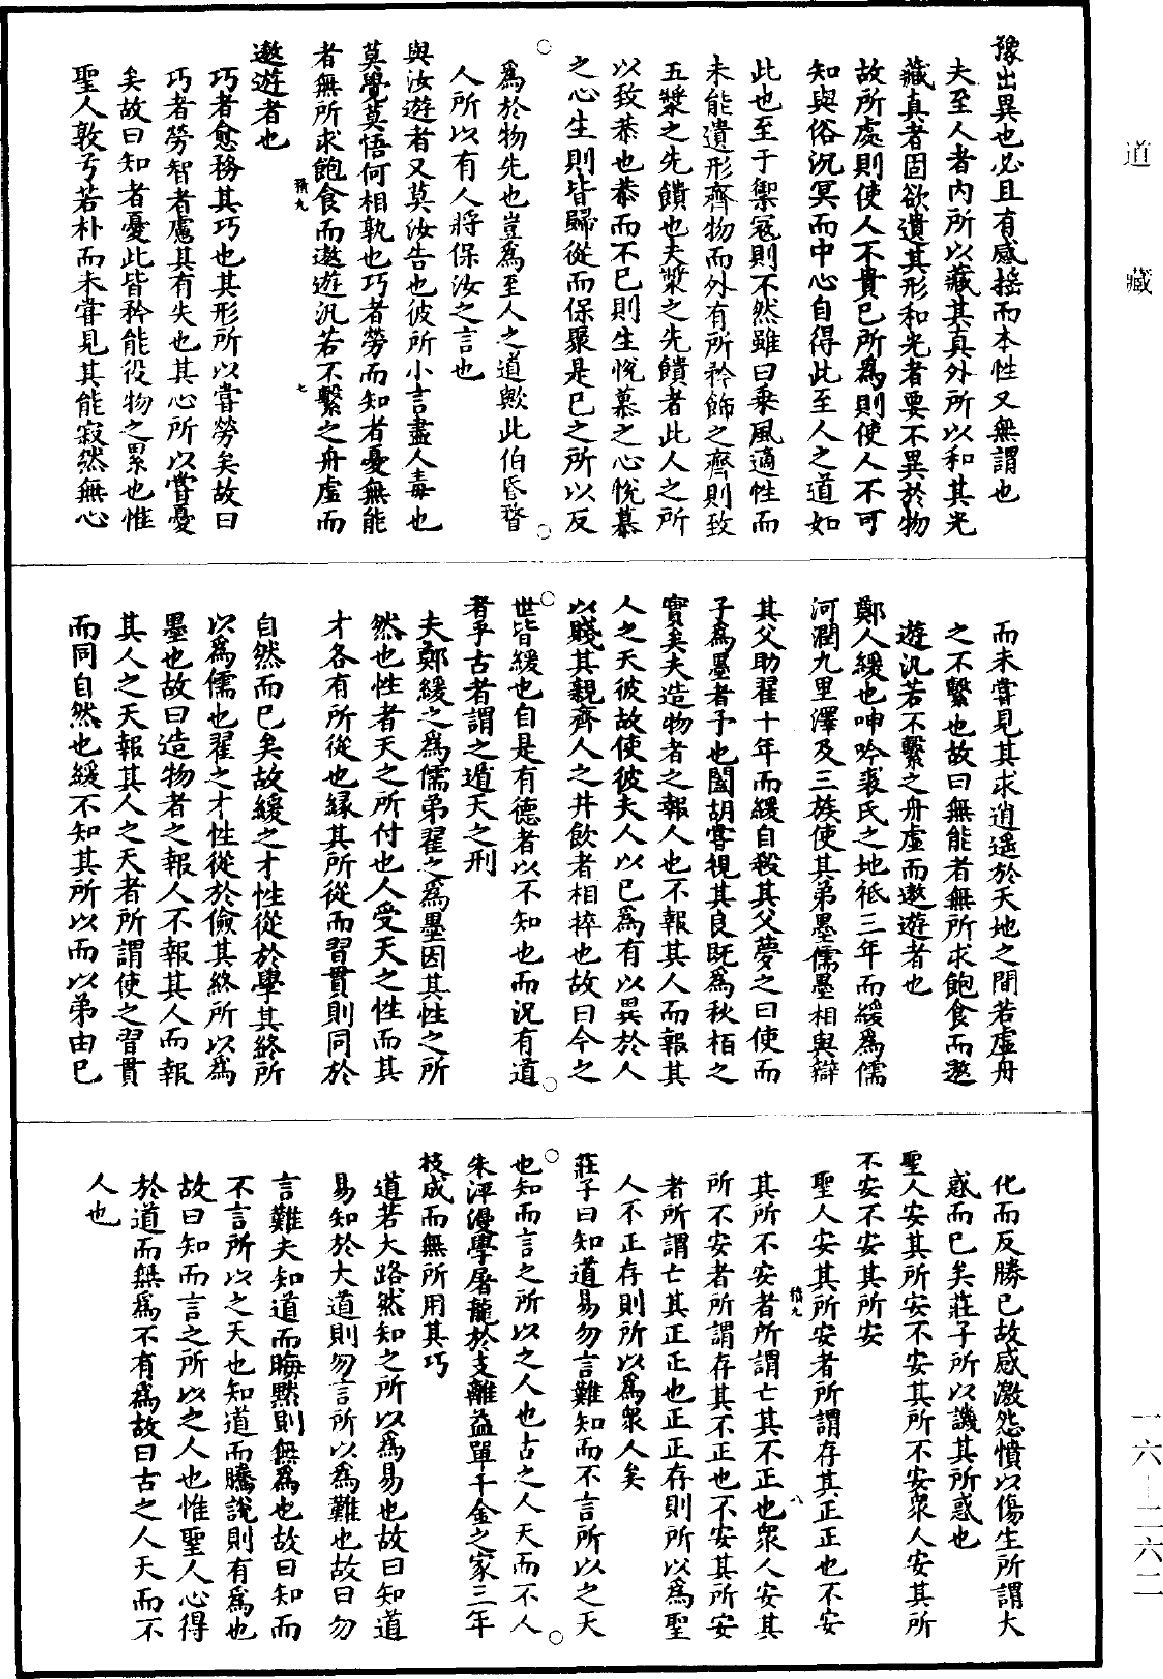 道藏
豫出異也必且有感搖而本性又無謂也
夫至人者内所以藏其真外所以和其光
藏真者固欲遺其形和光者要不異於物
故所處則使人不貴已所為則使人不可
知與俗沉冥而中心自得此至人之道如
此也至于禦寇則不然雖曰乗風適性而
未能遺形齊物而外有所矜飾之齊則致
五漿之先饋也夫漿之先饋者此人之所
以致恭也恭而不已則生悅慕之心悅慕
之心生則皆歸從而保聚是已之所以反
為於物先也豈為至人之道歟此伯昏瞀
人所以有人將保汝之言也
與汝遊者又莫汝告也彼所小言盡人毒也
莫覺莫悟何相孰也巧者勞而知者憂無能
者無所求飽食而遨遊汎若不繫之舟虛而
遨遊者也
巧者愈務其巧也其形所以甞勞矣故曰
巧者勞智者慮其有失也其心所以甞憂
矣故曰知者憂此皆矜能役物之累也惟
聖人敦兮若朴而未甞見其能寂然無心
積九
七
而未甞見其求逍遥於天地之間若虛舟
之不繫也故曰無能者無所求飽食而遨
遊汎若不繫之舟虛而遨遊者也
鄭人緩也呻吟裘氏之地祗三年而緩為儒
河潤九里澤及三族使其弟墨儒墨相與辯
其父助翟十年而緩自殺其父夢之曰使而
子為墨者予也闔胡甞視其良既為秋栢之
實矣夫造物者之報人也不報其人而報其
人之天彼故使彼夫人以已為有以異於人
以賤其親齊人之井飲者相捽也故曰今之
世皆緩也自是有德者以不知也而況有道
者乎古者謂之遁天之刑
夫鄭緩之為儒弟翟之為墨因其性之所
然也性者天之所付也人受天之性而其
才各有所從也縁其所從而習貫則同於
自然而已矣故緩之才性從於學其終所
以為儒也翟之才性從於儉其終所以為
墨也故曰造物者之報人不報其人而報
其人之天報其人之天者所謂使之習貫
而同自然也緩不知其所以而以弟由已
化而反勝已故感激怨憤以傷生所謂大
惑而已矣莊子所以譏其所惑也
聖人安其所安不安其所不安衆人安其所
不安不安其所安
聖人安其所安者所謂存其正正也不安
其所不安者所謂亡其不正也衆人安其
所不安者所謂存其不正也不安其所安
者所謂亡其正正也正正存則所以為聖
人不正存則所以為衆人矣
莊子曰知道易勿言難知而不言所以之天
也知而言之所以之人也古之人天而不人
朱泙漫學屠龍於支離益單千金之家三年
技成而無所用其巧
道若大路然知之所以為易也故曰知道
易知於大道則勿言所以為難也故曰勿
言難夫知道而晦黙則無為也故曰知而
不言所以之天也知道而騰說則有為也
故曰知而言之所以之人也惟聖人心得
於道而無為不有為故曰古之人天而不
人也
積九
八
一六—二六二